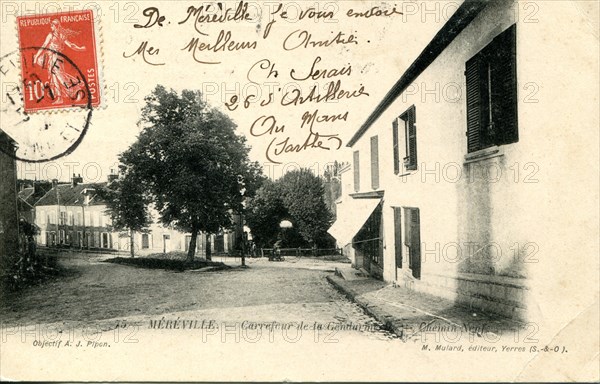 RÉPUBLIQUE FRANÇAISE
POSTES
10c
De Méréville je vous envoie
Mes Meilleurs Amitié.
Ch Serais
26 d'Artillerie
Au Mans
Sarthe
75 — MÉRÉVILLE. — Carrefour de la Gendarmerie — Chemin Neuf
Objectif A. J. Pipon.
M. Mulard, éditeur, Yerres (S.-&-O.)